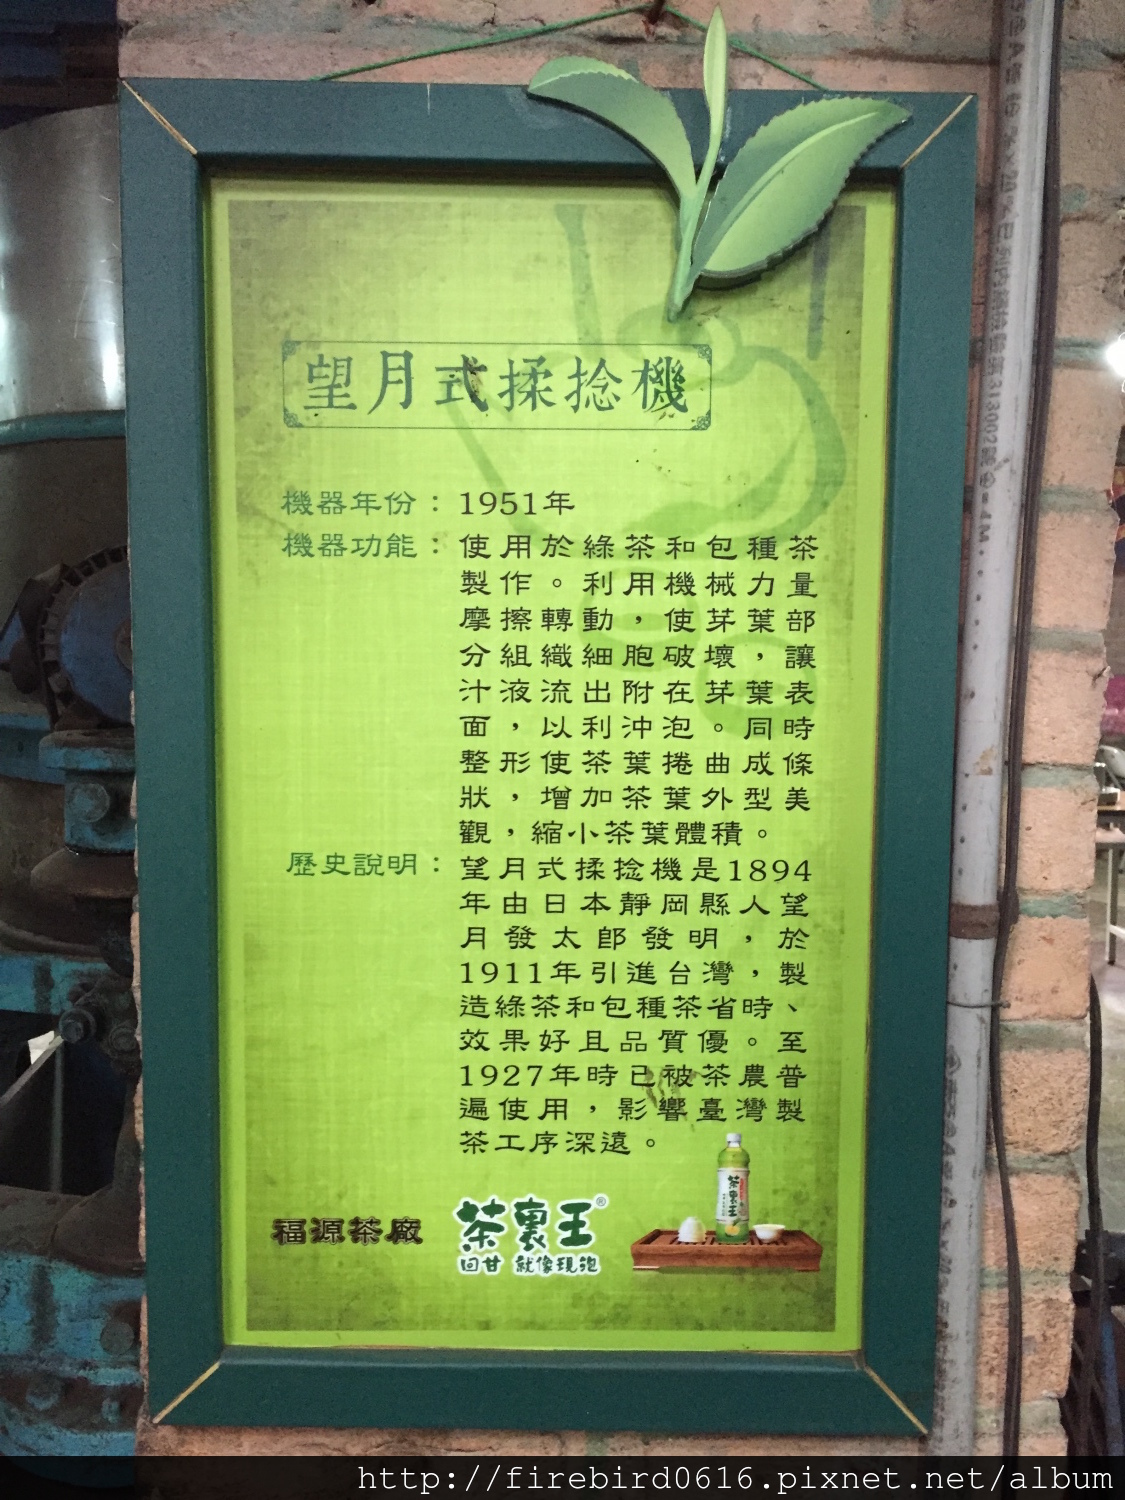 望月式揉捻機
機器年份：1951年
機器功能：使用於綠茶和包種茶
製作。利用機械力量
摩擦轉動，使芽葉部
分組織細胞破壞，讓
汁液流出附在芽葉表
面，以利沖泡。同時
整形使茶葉捲曲成條
狀，增加茶葉外型美
觀，縮小茶葉體積。
歷史說明：望月式揉捻機是1894
年由日本靜岡縣人望
月發太郎發明，於
1911年引進台灣，製
造綠茶和包種茶省時、
效果好且品質優。至
1927年時已被茶農普
遍使用，影響臺灣製
茶工序深遠。
福源茶廠
茶裏王®
回甘 就像現泡
茶裏王
http://firebird0616.pixnet.net/album